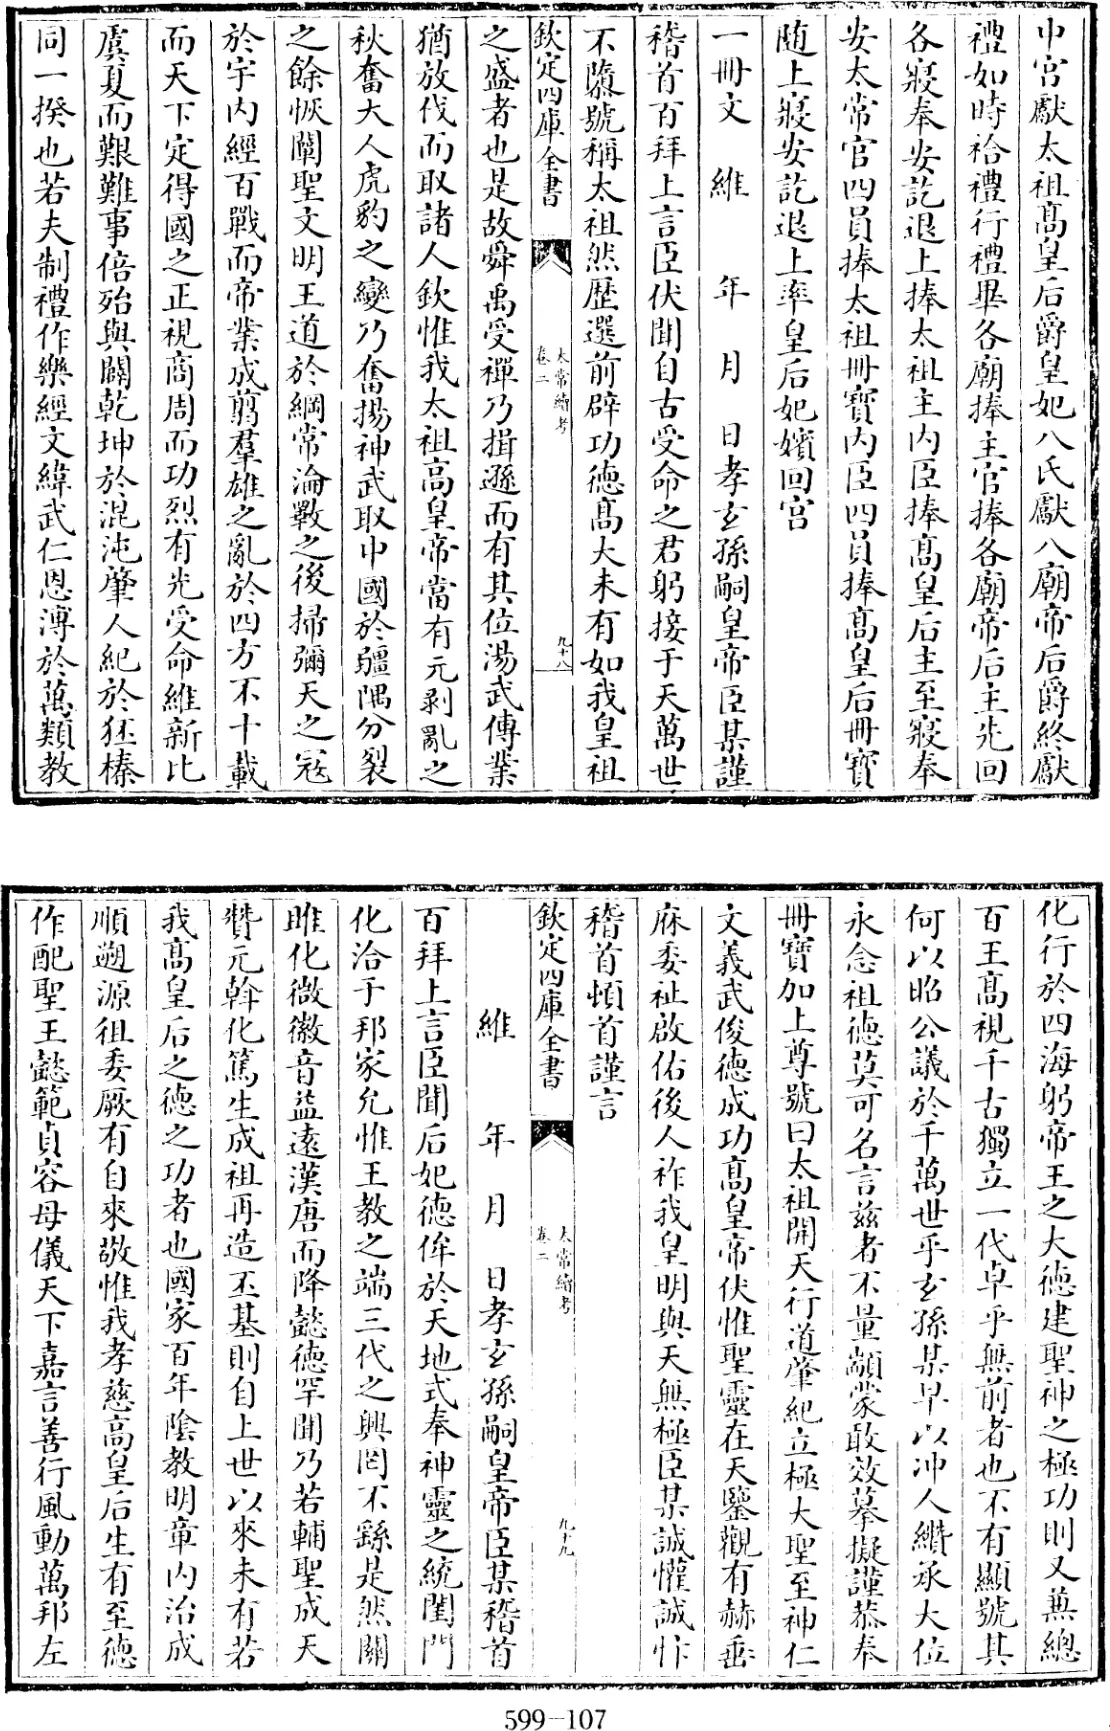 中宮獻太祖髙皇后爵皇妃八氏獻八廟帝后爵終獻
禮如時祫禮行禮畢各廟捧主官捧各廟帝后主先回
各寢奉安訖退上捧太祖主内臣捧髙皇后主至寢奉
安太常官四員捧太祖冊寳内臣四員捧髙皇后冊寳
随上寢安訖退上率皇后妃嬪回宮
一冊文　維　年　月　日孝玄孫嗣皇帝臣某謹
稽首百拜上言臣伏聞自古受命之君躬接于天萬世
不隳號稱太祖然歴選前辟功德髙大未有如我皇祖
欽定四庫全書
太常續考
卷二
九十八
之盛者也是故舜禹受禪乃揖遜而有其位湯武傳業
猶放伐而取諸人欽惟我太祖高皇帝當有元剥亂之
秋奮大人虎豹之變乃奮揚神武取中國於疆隅分裂
之餘恢闡聖文明王道於綱常淪斁之後掃彌天之冦
於宇内經百戰而帝業成翦羣雄之亂於四方不十載
而天下定得國之正視商周而功烈有光受命維新比
虞夏而艱難事倍殆與闢乾坤於混沌肇人紀於狉榛
同一揆也若夫制禮作樂經文緯武仁恩溥於萬類教
化行於四海躬帝王之大德建聖神之極功則又兼總
百王高視千古獨立一代卓乎無前者也不有顯號其
何以昭公議於千萬世乎玄孫某早以冲人纘承大位
永念祖德莫可名言兹者不量顓蒙敢效摹擬謹恭奉
冊寳加上尊號曰太祖開天行道肇紀立極大聖至神仁
文義武俊德成功髙皇帝伏惟聖靈在天鑒觀有赫垂
庥委祉啟佑後人祚我皇明與天無極臣某誠懽誠忭
稽首頓首謹言
欽定四庫全書
太常續考
卷二
九十九
維　年　月　日孝玄孫嗣皇帝臣某稽首
百拜上言臣聞后妃德侔於天地式奉神靈之統閨門
化洽于邦家允惟王教之端三代之興罔不繇是然關
雎化微徽音益遠漢唐而降懿德罕聞乃若輔聖成天
贊元斡化篤生成祖再造丕基則自上世以來未有若
我髙皇后之德之功者也國家百年陰教明章内治成
順遡源徂委厥有自來敬惟我孝慈高皇后生有至德
作配聖王懿範貞容母儀天下嘉言善行風動萬邦左
599-107